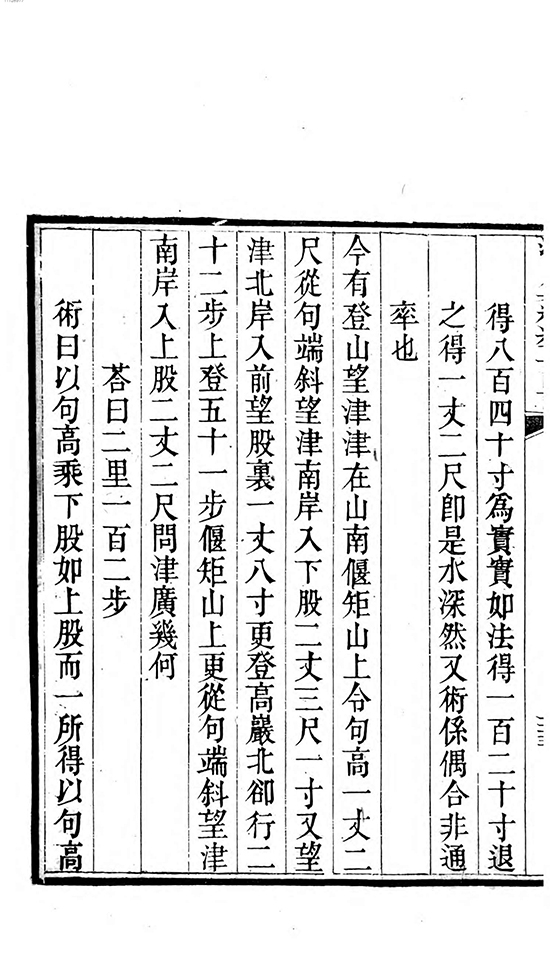 得八百四十寸爲實實如法得一百二十寸退
之得一丈二尺卽是水深然又術係偶合非通
率也
今有登山望津津在山南偃矩山上令句高一丈二
尺從句端斜望津南岸入下股二丈三尺一寸又望
津北岸入前望股裏一丈八寸更登高巖北卻行二
十二步上登五十一步偃矩山上更從句端斜望津
南岸入上股二丈二尺問津廣幾何
荅曰二里一百二步
術曰以句高乘下股如上股而一所得以句高